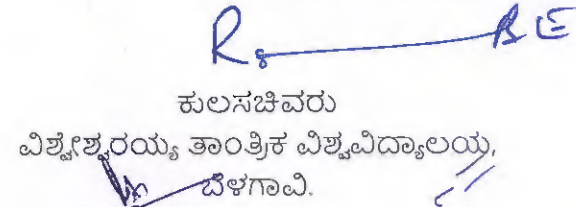 ಕುಲಸಚಿವರು
ವಿಶ್ವೇಶ್ವರಯ್ಯ ತಾಂತ್ರಿಕ ವಿಶ್ವವಿದ್ಯಾಲಯ,
ಬೆಳಗಾವಿ.